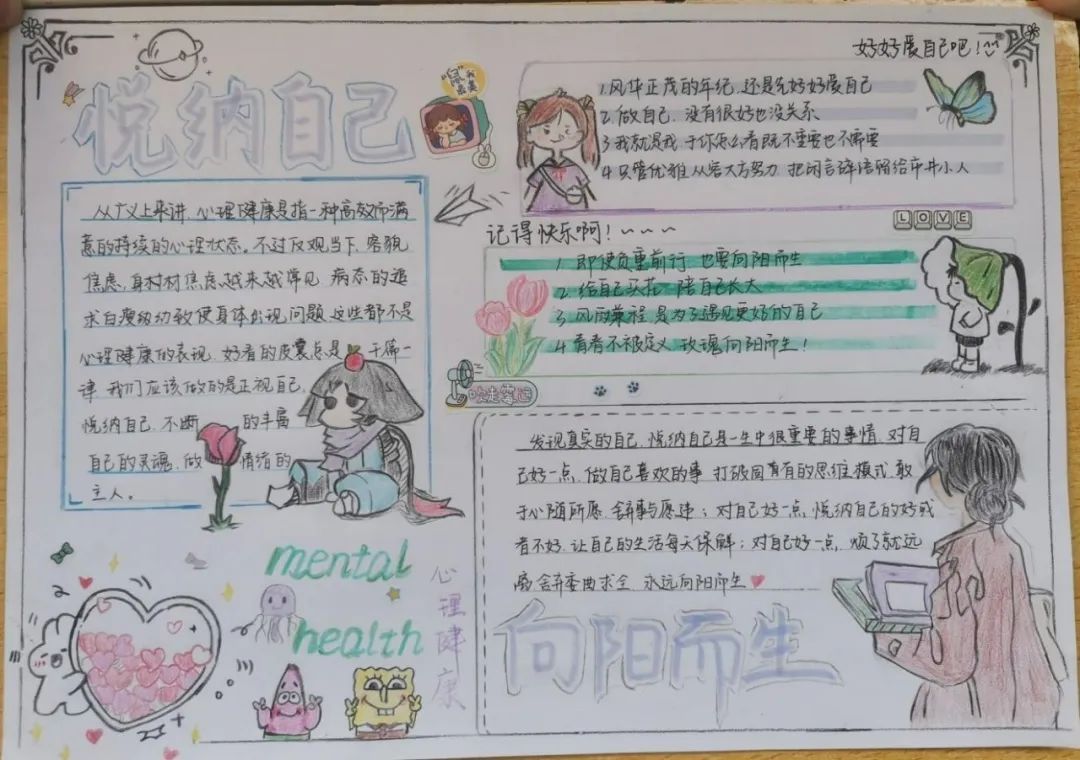 好好爱自己吧!
悦纳自己
1.风华正茂的年纪.还是先好好爱自己
2.做自己.没有很好也没关系
3.我就是我.于你怎么看既不重要也不需要
4.只管优雅.从容大方努力.把闲言碎语留给市井小人
LOVE
从广义上来讲.心理健康是指一种高效而满
意的持续的心理状态。不过反观当下.容貌
焦虑.身材材焦虑越来越常见.病态的追
求白瘦幼幼致使身体出现问题.这些都不是
心理健康的表现.好看的皮囊总是 千篇一
律.我们应该做的是正视自己.
悦纳自己.不断 的丰富
自己的灵魂.做 情绪的
主人。
记得快乐啊!~~~
1.即使负重前行.也要向阳而生
2.给自己买花.陪自己长大
3.风雨兼程.是为了遇见更好的自己
4.青春不被定义.玫瑰向阳而生!
发现真实的自己.悦纳自己是一生中很重要的事情.对自
己好一点.做自己喜欢的事.打破固有有的思维模式.敢
于心随所愿.舍弃事与愿违;对自己好一点.悦纳自己的好或
者不好.让自己的生活每天保鲜;对自己好一点.烦了就远
离.舍弃委曲求全.永远向阳而生
mental
health
心理健康
向阳而生